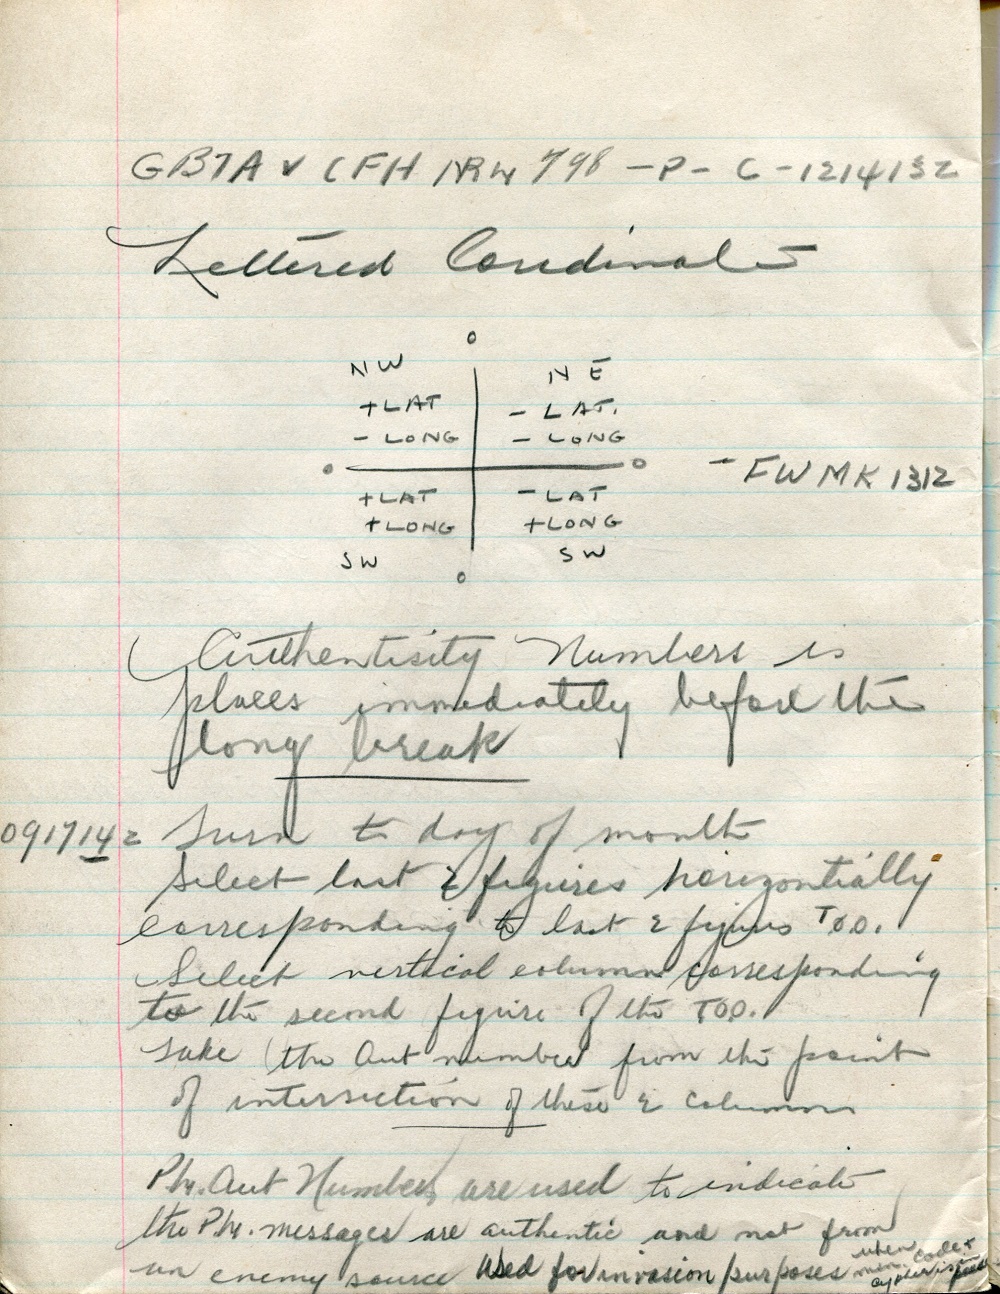 GBTA V CFH NRW 798 - P - C - 121413Z
Lettered Cordinates
NW NE
+LAT - LAT.
- LONG - LONG
- FWMK 1312
+LAT - LAT
+LONG +LONG
SW SW
Authentisity Numbers is
places immediately before the
long break
091714Z Turn to day of month
Select last 2 figures horizontially
corresponding to last 2 figures TOO.
Select vertical column corresponding
to the second figure of the TOO.
Take (the Aut number from the point
of intersection of these 2 columns
Ph. Aut Numbers are used to indicate
the Ph. messages are authentic and not from
an enemy source Used for invasion purposes when
code +
cypher is